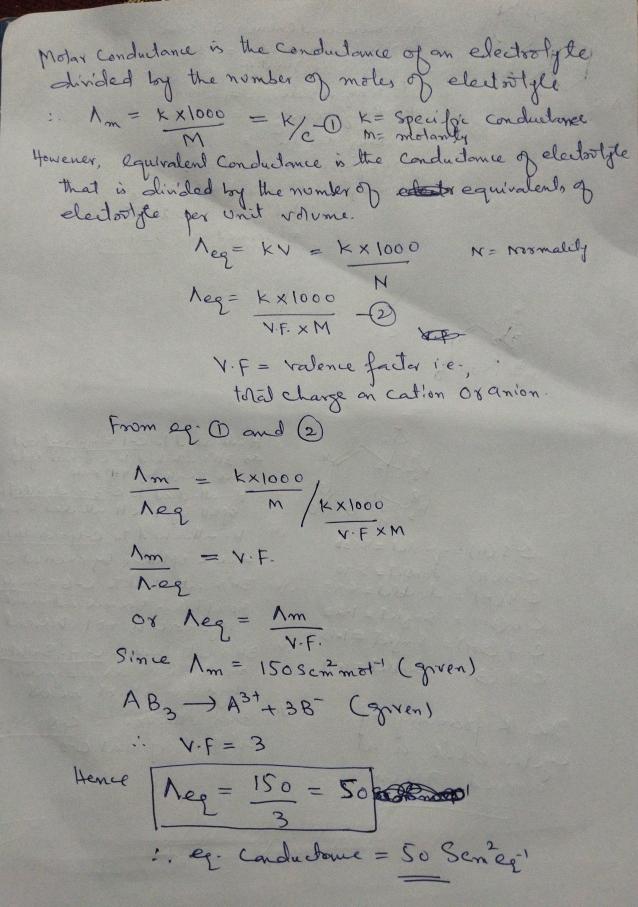 Molar Conductance is the conductance of an electrolyte
divided by the number of moles of electrolyte
∴ Λm = K×1000/M = K/C -① K = Specific conductance
M = molarity
However, equivalent conductance is the conductance of electrolyte
that is divided by the number of equivalents of
electrolyte per unit volume.
Λeq = KV = K×1000/N N = Normality
Λeq = K×1000/V.F. × M -②
V.F = valence factor i.e.,
total charge on cation or anion.
From eq. ① and ②
Λm/Λeq = K×1000/M / K×1000/V.F × M
Λm/Λeq = V.F.
or Λeq = Λm/V.F.
Since Λm = 150 S cm² mol⁻¹ (given)
AB₃ → A³⁺ + 3B⁻ (given)
∴ V.F = 3
Hence Λeq = 150/3 = 50
∴ eq. conductance = 50 S cm² eq⁻¹